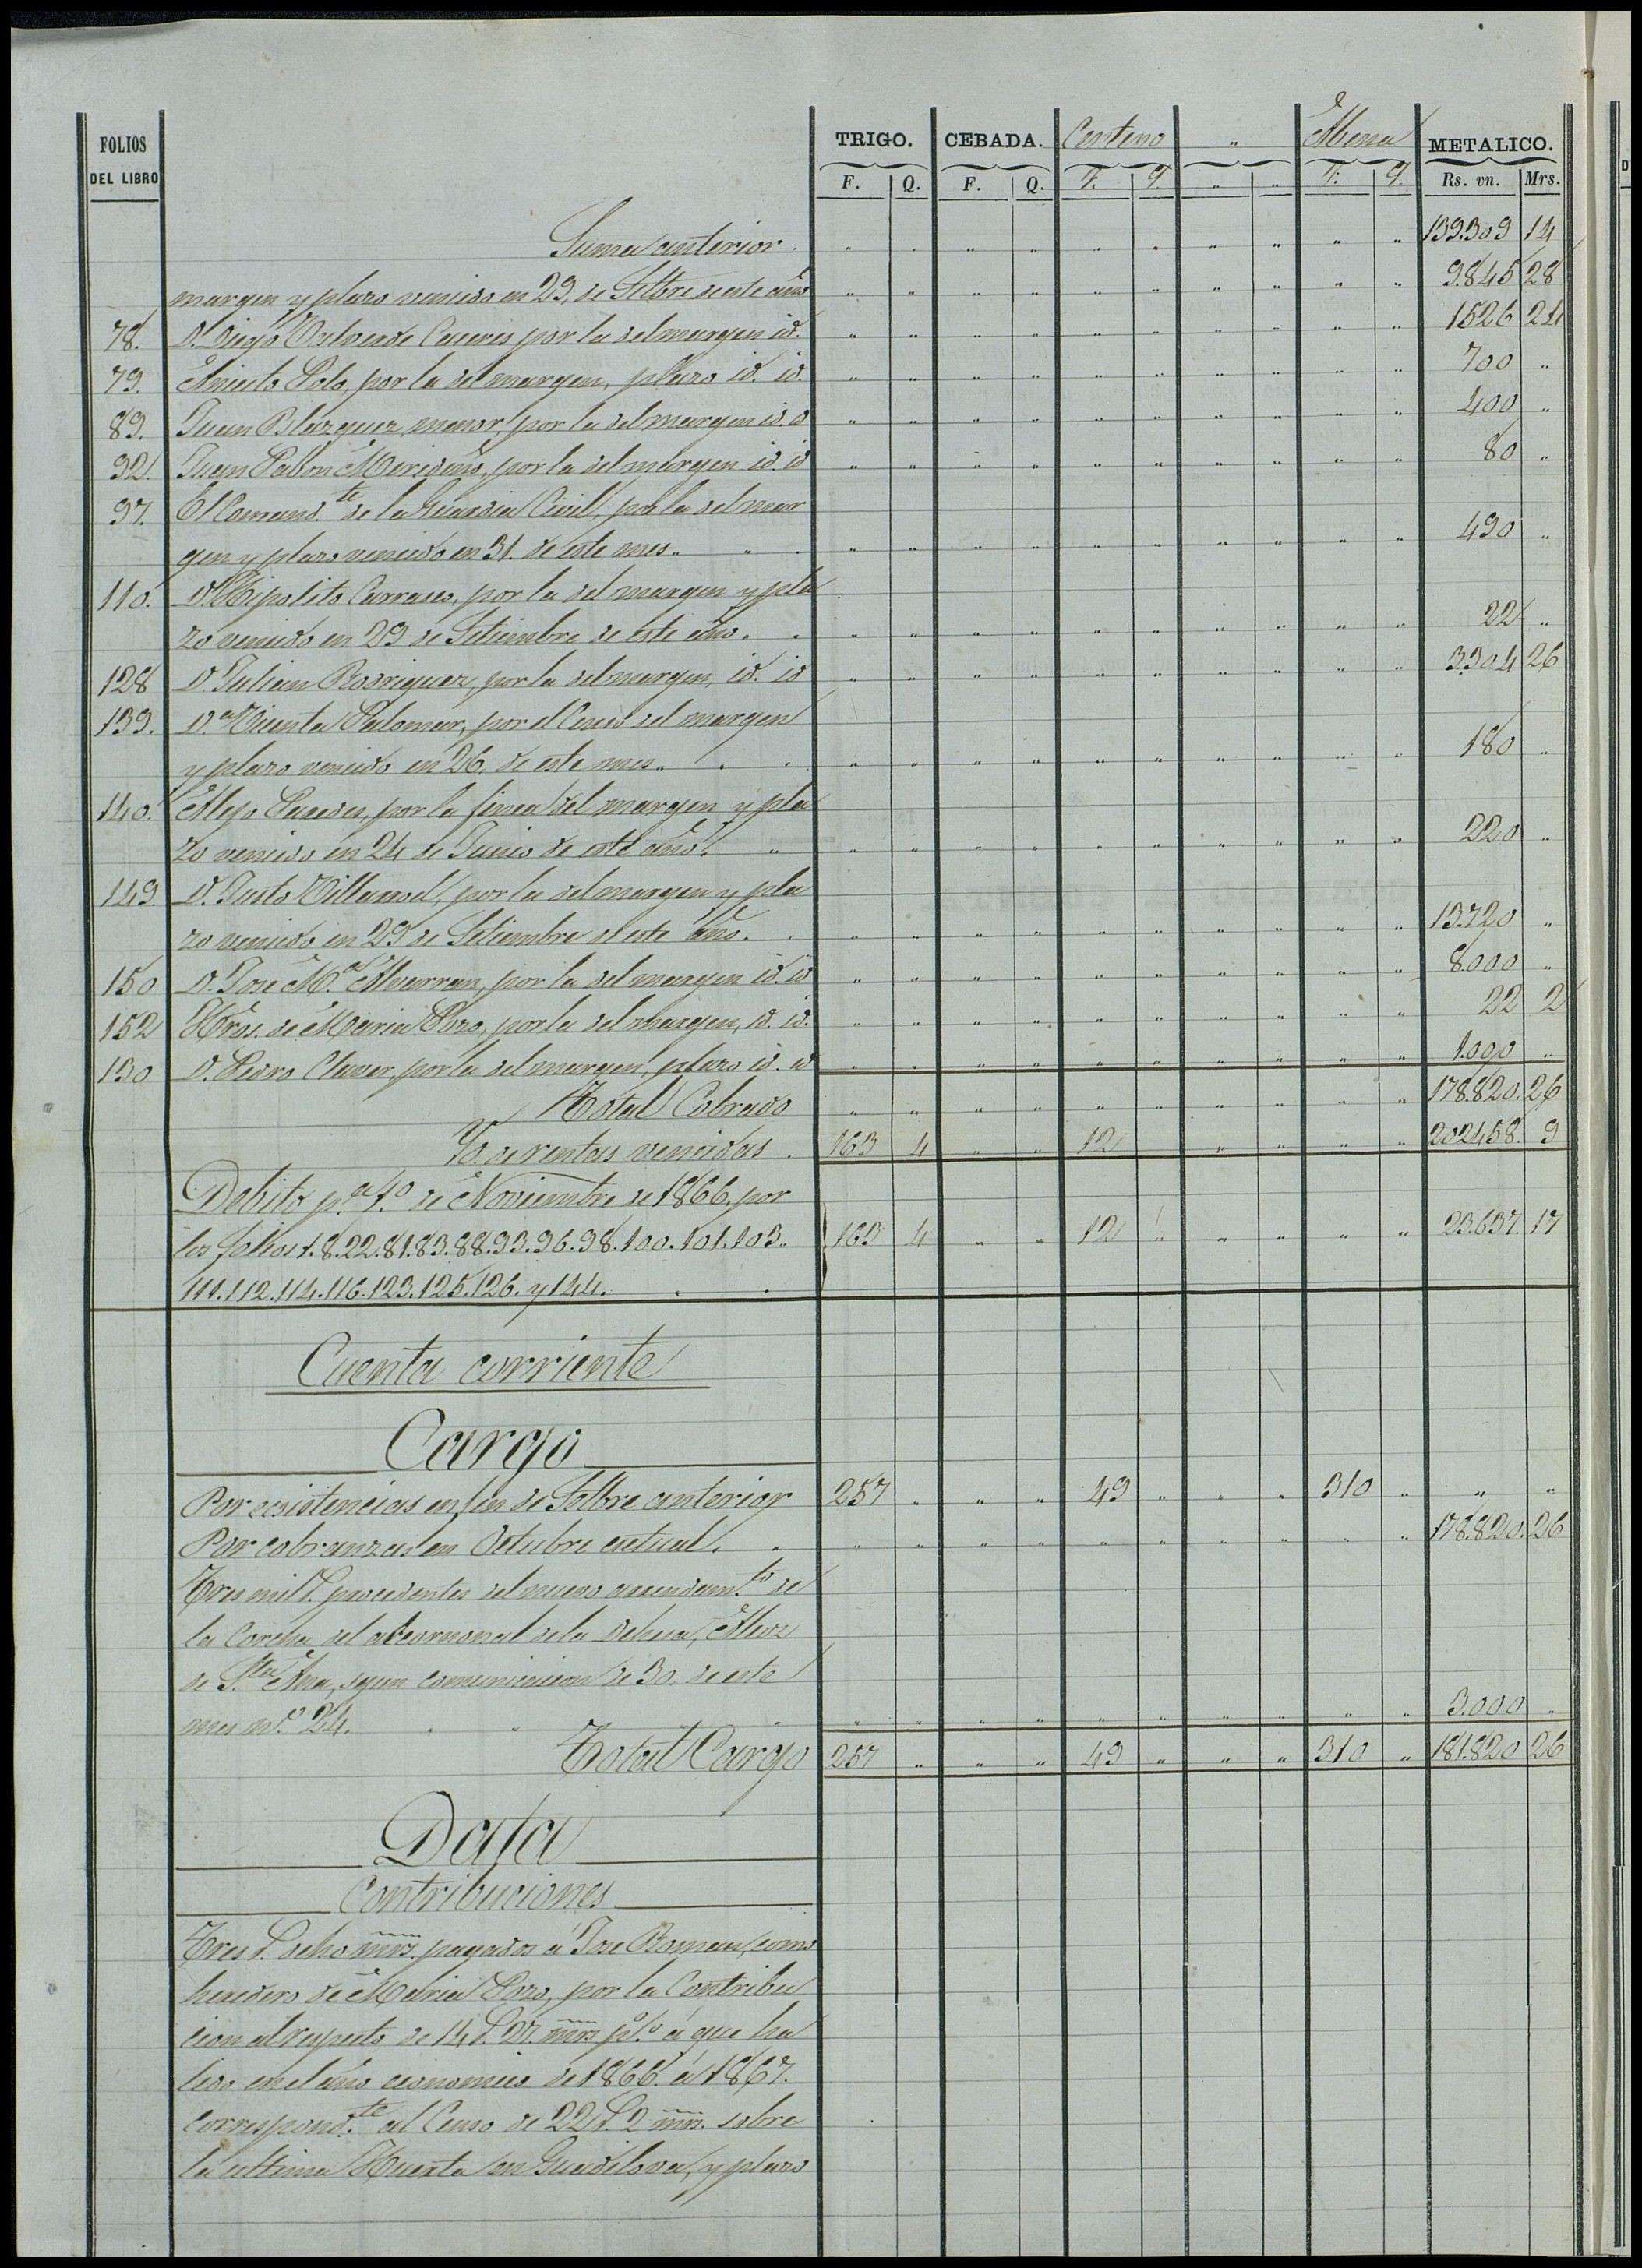 FOLIOS DEL LIBRO TRIGO. CEBADA. Centeno " Abena METALICO.
F. Q. F. Q. F. Q. " " F. Q. Rs. vn. Mrs.
Suma anterior. " " " " " " " " " " 139.309 14
margen y plazo vencido en 29, de Stbre de este año " " " " " " " " " " 9.845 28
78. D. Diego Valverde Caceres por la del margen id. " " " " " " " " " " 1526 24
79. Aniceto Polo, por la del margen, plazo id. id. " " " " " " " " " " 700 "
89. Juan Blazquez menor, por la del margen id. id " " " " " " " " " " 400 "
92. Juan Pabon Merideño, por la del margen id. id " " " " " " " " " " 80 "
97. El Comand.te de la Guardia Civil, por la del mar
gen y plazo vencido en 31. de este mes. " " " " " " " " " " 490 "
110. D. Hipolito Carrasco, por la del margen y pla
zo vencido en 29 de Setiembre de este año. " " " " " " " " " " 22 "
128 D. Julian Rodriguez, por la del margen, id. id " " " " " " " " " " 3.304 26
139. D.a Vicenta Palomar, por el Censo del margen
y plazo vencido en 26. de este mes. " " " " " " " " " " 180 "
140. Alejo Paredes, por la finca del margen y pla
zo vencido en 24 de Junio de este año. " " " " " " " " " " 220 "
149. D. Justo Villanoel, por la del margen y pla
zo vencido en 29 de Setiembre de este año. " " " " " " " " " " 13.720 "
150 D. Jose M.a Albarran, por la del margen id. id " " " " " " " " " " 8.000 "
152 Hros. de Maria Pozo, por la del margen, id. id. " " " " " " " " " " 22 2
130 D. Pedro Claver, por la del margen, plazo id. id " " " " " " " " " " 1.090 "
Total Cobrado " " " " " " " " " " 178.820. 26
Yd. de rentas vencidas. 163 4 " " 12 " " " " 202458. 9
Debito p.a 1.o de Noviembre de 1866, por
los folios 1.8.22.81.83.88.93.96.98.100.101.103. 163 4 " " 12 " " " " " 23.637. 17
111.112.114.116.123.125.126. y 144.
Cuenta corriente
Cargo
Por existencias en fin de Stbre anterior 257 " " " 49 " " " 310 " " "
Por cobranzas en Octubre actual. " " " " " " " " " " 178.820. 26
Tres mil r. procedentes del nuevo arrendam.to de
la Corcha del alcornocal de la Dehesa,
de S.ta Ana, segun comunicacion de 30. de este
mes n.o 24. " " " " " " " " " " 3.000 "
Total Cargo 257 " " " 49 " " " 310 " 181.820 26
Data
Contribuciones
Tres r. ocho mrs. pagados á Jose Roman, como
heredero de Maria Pozo, por la Contribu
cion al respecto de 14 r. mrs p%. á que ha
lido en el año economico de 1866. á 1867.
correspond.te al Censo de 22 r. 2 mrs. sobre
la ultima Huerta en Guadiloba, y plazo